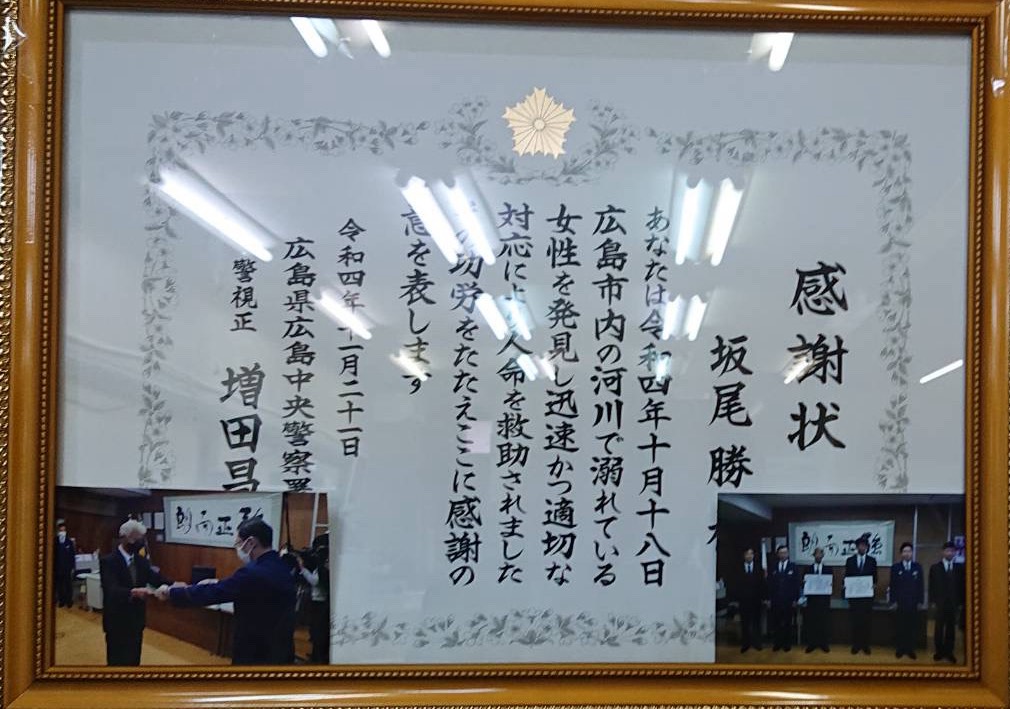 感謝状
坂尾勝
あなたは令和四年十月十八日
広島市内の河川で溺れている
女性を発見し迅速かつ適切な
対応により人命を救助されました
功労をたたえここに感謝の
意を表します
令和四年十一月二十一日
広島県広島中央警察署
警視正 増田昌